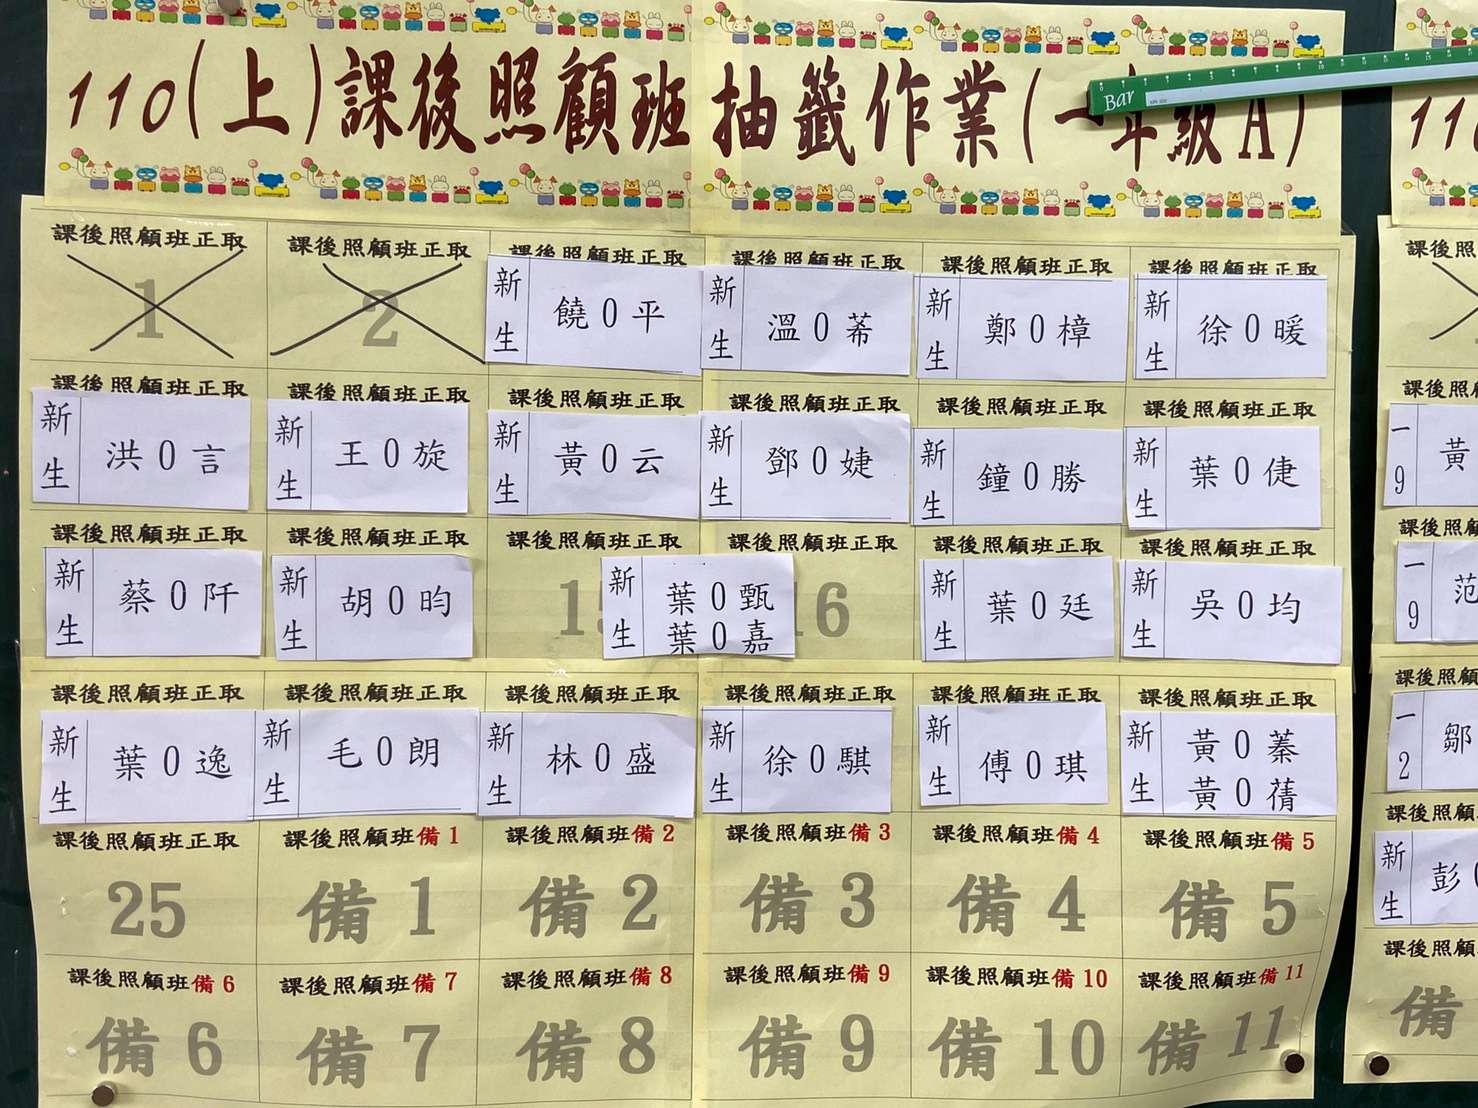 110(上)課後照顧班 抽籤作業(一年級A)
Bar
課後照顧班正取 課後照顧班正取 課後照顧班正取 課後照顧班正取 課後照顧班正取 課後照顧班正取
1 2 新生 饒0平 新生 溫0莃 新生 鄭0樟 新生 徐0暖
課後照顧班正取 課後照顧班正取 課後照顧班正取 課後照顧班正取 課後照顧班正取 課後照顧班正取
新生 洪0言 新生 王0旋 新生 黃0云 新生 鄧0婕 新生 鐘0勝 新生 葉0倢
課後照顧班正取 課後照顧班正取 課後照顧班正取 課後照顧班正取 課後照顧班正取 課後照顧班正取
新生 蔡0阡 新生 胡0昀 15 新生 葉0甄 16 新生 葉0廷 新生 吳0均
葉0嘉
課後照顧班正取 課後照顧班正取 課後照顧班正取 課後照顧班正取 課後照顧班正取 課後照顧班正取
新生 葉0逸 新生 毛0朗 新生 林0盛 新生 徐0騏 新生 傅0琪 新生 黃0蓁
黃0蒨
課後照顧班正取 課後照顧班備1 課後照顧班備2 課後照顧班備3 課後照顧班備4 課後照顧班備5
25 備1 備2 備3 備4 備5
課後照顧班備6 課後照顧班備7 課後照顧班備8 課後照顧班備9 課後照顧班備10 課後照顧班備11
備6 備7 備8 備9 備10 備11
11
課後照
課後照顧
一9 黃
課後照顧
一9 范
課後照顧
一2 鄒
課後照顧
新生 彭
課後照顧
備